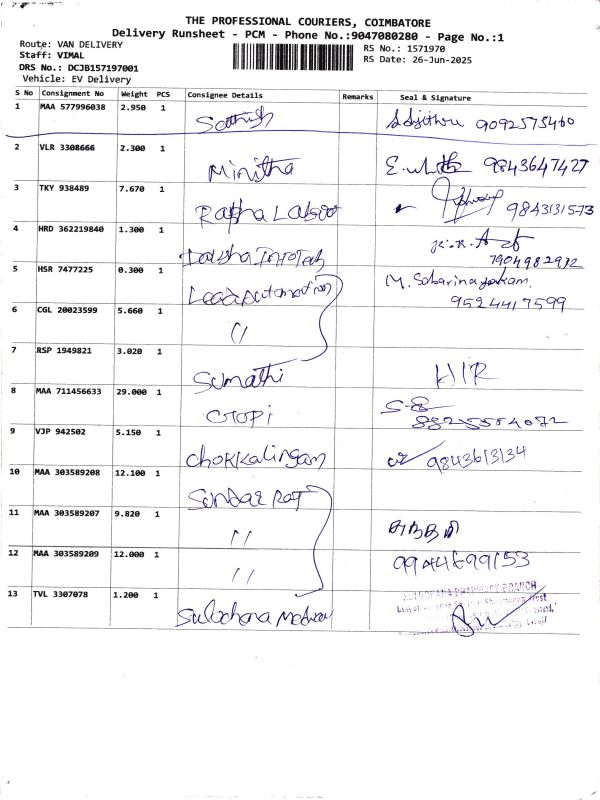 THE PROFESSIONAL COURIERS, COIMBATORE
Delivery Runsheet - PCM - Phone No.:9047080280 - Page No.:1
Route: VAN DELIVERY
Staff: VIMAL
RS No.: 1571970
DRS No.: DCJB157197001
RS Date: 26-Jun-2025
Vehicle: EV Delivery
S No Consignment No Weight PCS Consignee Details Remarks Seal & Signature
1 MAA 577996038 2.950 1 Sathish 9092575460
2 VLR 3308666 2.300 1 Minitha 9843647427
3 TKY 938489 7.670 1 9843131573
4 HRD 362219840 1.300 1 7904982972
5 HSR 7477225 0.300 1 M. Sabarinayakam
9524417599
6 CGL 20023599 5.660 1 "
7 RSP 1949821 3.020 1 Sumathi H/R
8 MAA 711456633 29.000 1 Gopi
9 VJP 942502 5.150 1 Chokkalingam 9843613134
10 MAA 303589208 12.100 1 Sundar Raj
11 MAA 303589207 9.820 1 "
12 MAA 303589209 12.000 1 " 9944699153
13 TVL 3307078 1.200 1 Sulochana